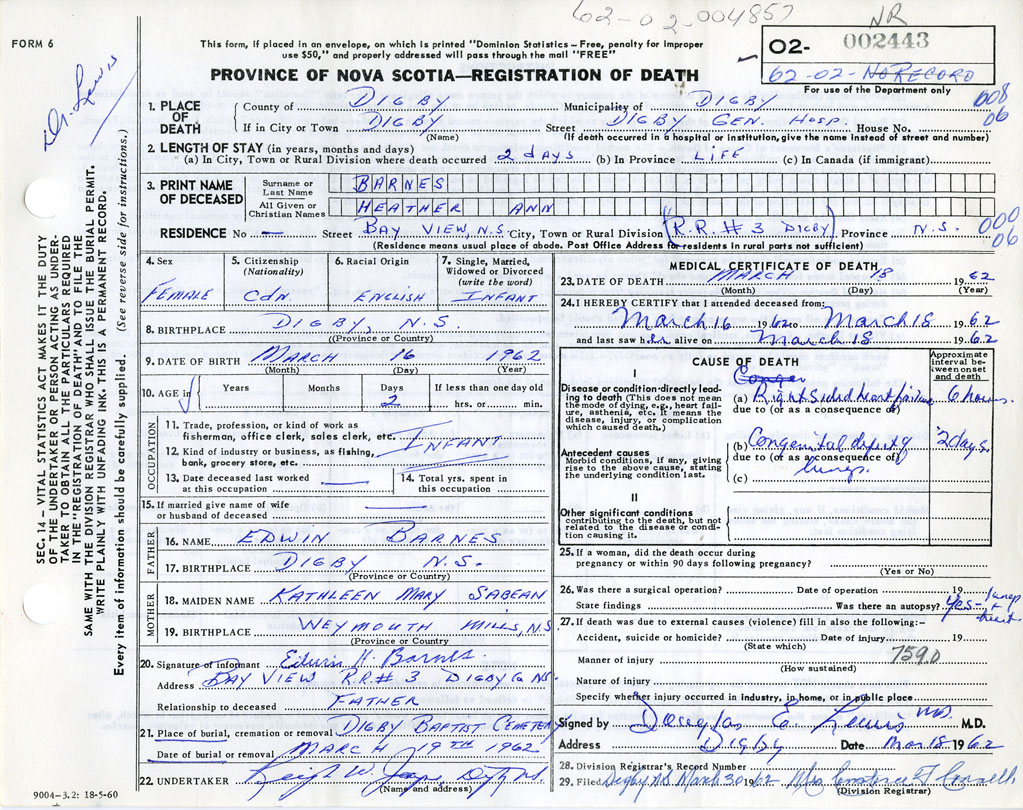 62-02-004857
NR
FORM 6
This form, if placed in an envelope, on which is printed "Dominion Statistics – Free, penalty for improper
use $50," and properly addressed will pass through the mail "FREE"
02- 002443
62-02- NO RECORD
For use of the Department only
PROVINCE OF NOVA SCOTIA—REGISTRATION OF DEATH
Dr. Lewis
008
06
1. PLACE OF DEATH County of DIGBY Municipality of DIGBY
If in City or Town DIGBY Street DIGBY GEN. HOSP. House No.
(Name) (If death occurred in a hospital or institution, give the name instead of street and number)
2. LENGTH OF STAY (in years, months and days)
(a) In City, Town or Rural Division where death occurred 2 days (b) In Province LIFE (c) In Canada (if immigrant)
3. PRINT NAME OF DECEASED Surname or Last Name BARNES
All Given or Christian Names HEATHER ANN
RESIDENCE No — Street BAY VIEW, N.S. City, Town or Rural Division (R.R. # 3 DIGBY) Province N.S.
000
06
(Residence means usual place of abode. Post Office Address for residents in rural parts not sufficient)
4. Sex FEMALE
5. Citizenship (Nationality) Cdn
6. Racial Origin ENGLISH
7. Single, Married, Widowed or Divorced (write the word) INFANT
8. BIRTHPLACE DIGBY, N.S.
(Province or Country)
9. DATE OF BIRTH MARCH 16 1962
(Month) (Day) (Year)
10. AGE in Years Months Days 2 If less than one day old hrs. or min.
OCCUPATION
11. Trade, profession, or kind of work as
fisherman, office clerk, sales clerk, etc. INFANT
12. Kind of industry or business, as fishing,
bank, grocery store, etc.
13. Date deceased last worked
at this occupation —
14. Total yrs. spent in
this occupation
15. If married give name of wife
or husband of deceased —
FATHER
16. NAME EDWIN BARNES
17. BIRTHPLACE DIGBY N.S.
(Province or Country)
MOTHER
18. MAIDEN NAME KATHLEEN MARY SABEAN
19. BIRTHPLACE WEYMOUTH MILLS, N.S.
(Province or Country
20. Signature of informant Edwin H. Barnes
Address BAY VIEW R.R.# 3 DIGBY NS
Relationship to deceased FATHER
21. Place of burial, cremation or removal DIGBY BAPTIST CEMETERY
Date of burial or removal MARCH 19TH 1962
22. UNDERTAKER
(Name and address)
9004-3.2: 18-5-60
MEDICAL CERTIFICATE OF DEATH
23. DATE OF DEATH MARCH 18 1962
(Month) (Day) (Year)
24. I HEREBY CERTIFY that I attended deceased from:
March 16 1962 to March 18 1962
and last saw her alive on March 18 1962
CAUSE OF DEATH
Approximate interval between onset and death
I
Disease or condition directly leading to death (This does not mean the mode of dying, e.g., heart failure, asthenia, etc. It means the disease, injury, or complication which caused death.)
(a) Right Sided Heart failure 6 hours.
due to (or as a consequence of)
Antecedent causes
Morbid conditions, if any, giving rise to the above cause, stating the underlying condition last.
(b) Congenital 2 days.
due to (or as a consequence of)
lungs.
(c)
II
Other significant conditions
contributing to the death, but not related to the disease or condition causing it.
25. If a woman, did the death occur during
pregnancy or within 90 days following pregnancy?
(Yes or No)
26. Was there a surgical operation? Date of operation 19
State findings Was there an autopsy? Yes - lungs + heart
27. If death was due to external causes (violence) fill in also the following:-
Accident, suicide or homicide? Date of injury 19
(State which)
Manner of injury 759.0
(How sustained)
Nature of injury
Specify whether injury occurred in industry, in home, or in public place
Signed by Douglas E Lewis MD. M.D.
Address Digby Date Mar 18 1962
28. Division Registrar's Record Number
29. Filed Digby NS March 30 1962 Mrs
(Division Registrar)
SEC. 14 – VITAL STATISTICS ACT MAKES IT THE DUTY
OF THE UNDERTAKER OR PERSON ACTING AS UNDER-
TAKER TO OBTAIN ALL THE PARTICULARS REQUIRED
IN THE "REGISTRATION OF DEATH" AND TO FILE THE
SAME WITH THE DIVISION REGISTRAR WHO SHALL ISSUE THE BURIAL PERMIT.
WRITE PLAINLY WITH UNFADING INK. THIS IS A PERMANENT RECORD.
Every item of information should be carefully supplied. (See reverse side for instructions.)